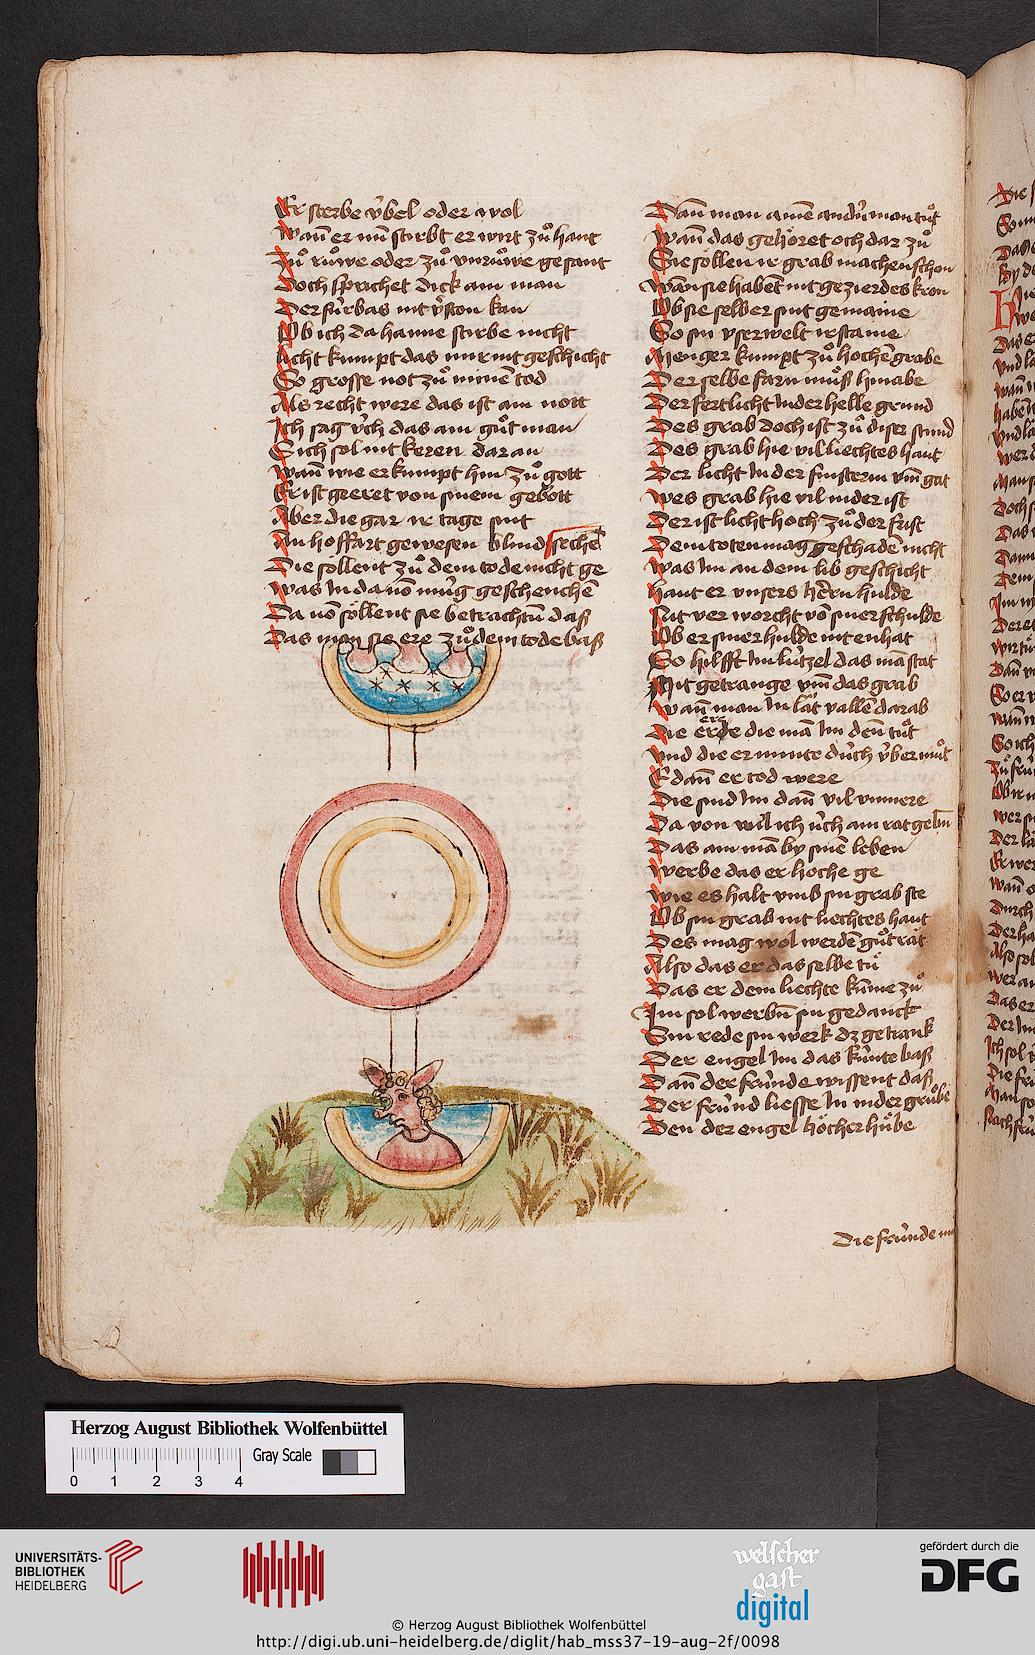 Er sterbe v̊bel oder wol
Wan̄ er nu̅ stirbt er wirt zů hant
Zů růwe oder zů vnrůwe gesant
Doch sprichet dick ain man
Der fúrbas nit v̊ston kan
Ob ich da haime stirbe nicht
Licht kumpt das mir nit geschicht
So grosse not zů minē tod
Als recht were das ist ain nott
Ich sag v́ch das ain gůt man
Sich sol nit keren dar an
Wan̄ wie er kumpt hin zů gott
Er ist geeret von sinem gebott
Aber die gar ir tage sint
In hoffart gewesen blind
Die söllent zů dem tode nicht ge
Was In da võ múg geschenchē
Da võ söllent sie betrachtn̄ das
Das man sie ere zů dem tode bas
Dan̄ man amē andn̄ man tůt
Wan̄ das gehöret och dar zů
Sie söllen ir grab machen schon
Wan̄ sie habent nit gezierdes kron
Ob sie selber sint gemaine
So sin vser welt ir staine
Menger kumpt zů hochē grabe
Der selbe farn můß hin abe
Der fert licht In der helle grund
Des grab doch ist zů diser stund
Des grab hie vil liechtes hant
Der licht In der finsterin vm̄ gat
Wes grab hie vil nider ist
Der ist licht hoch zů der frist
Dem toten mag geschadē nicht
Was Im an dem lib geschicht
Haut er vnsers hērn hulde
Nit ver worcht võ siner schulde
Ob er siner hulde nit enhat
So hilfft In lútzel das mā stat
Mit getrange vm̄ das grab
Wan̄ man In lat vallē darab
Die erde die mā Im den̄ tůt
Vnd die er minte durch v̊ber můt
E dan̄ er tod were
Die sind Im dan̄ vil vnmere
Da von wil ich v́ch ain rat gebn̄
Das ain mā by sinē leben
Werbe das er hoche ge
Wie es halt vmb sin grab ste
Ob sin grab nit liechtes haut
Des mag wol werdē gůt rat
Also das er das selbe tů
Das er dem liechte kúme zů
Im sol werbn̄ sin gedanck
Sin rede sin werk dz getrank
Der engel Im das kúnte baß
Dan̄ der frúnde wissent daß
Der frúnd liesse In in der grůbe
Den der engel höcher hůbe
Die frúnde
Herzog August Bibliothek Wolfenbüttel
Gray Scale
0 1 2 3 4
UNIVERSITÄTS-
BIBLIOTHEK
HEIDELBERG
welscher
gast
digital
gefördert durch die
DFG
© Herzog August Bibliothek Wolfenbüttel
http://digi.ub.uni-heidelberg.de/diglit/hab_mss37-19-aug-2f/0098